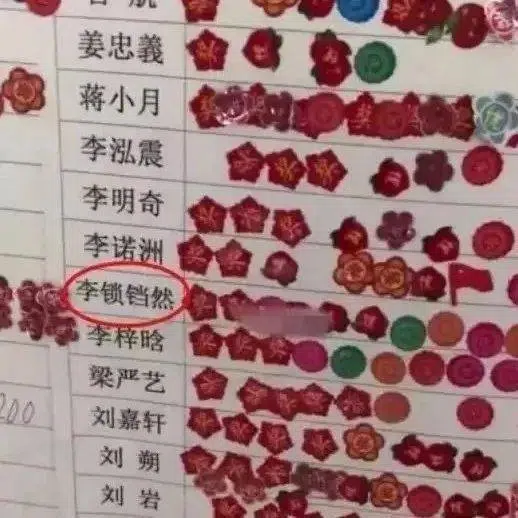 姜忠義
蒋小月
李泓震
李明奇
李诺洲
李锁铛然
李梓晗
梁严艺
刘嘉轩
刘朔
刘岩
200